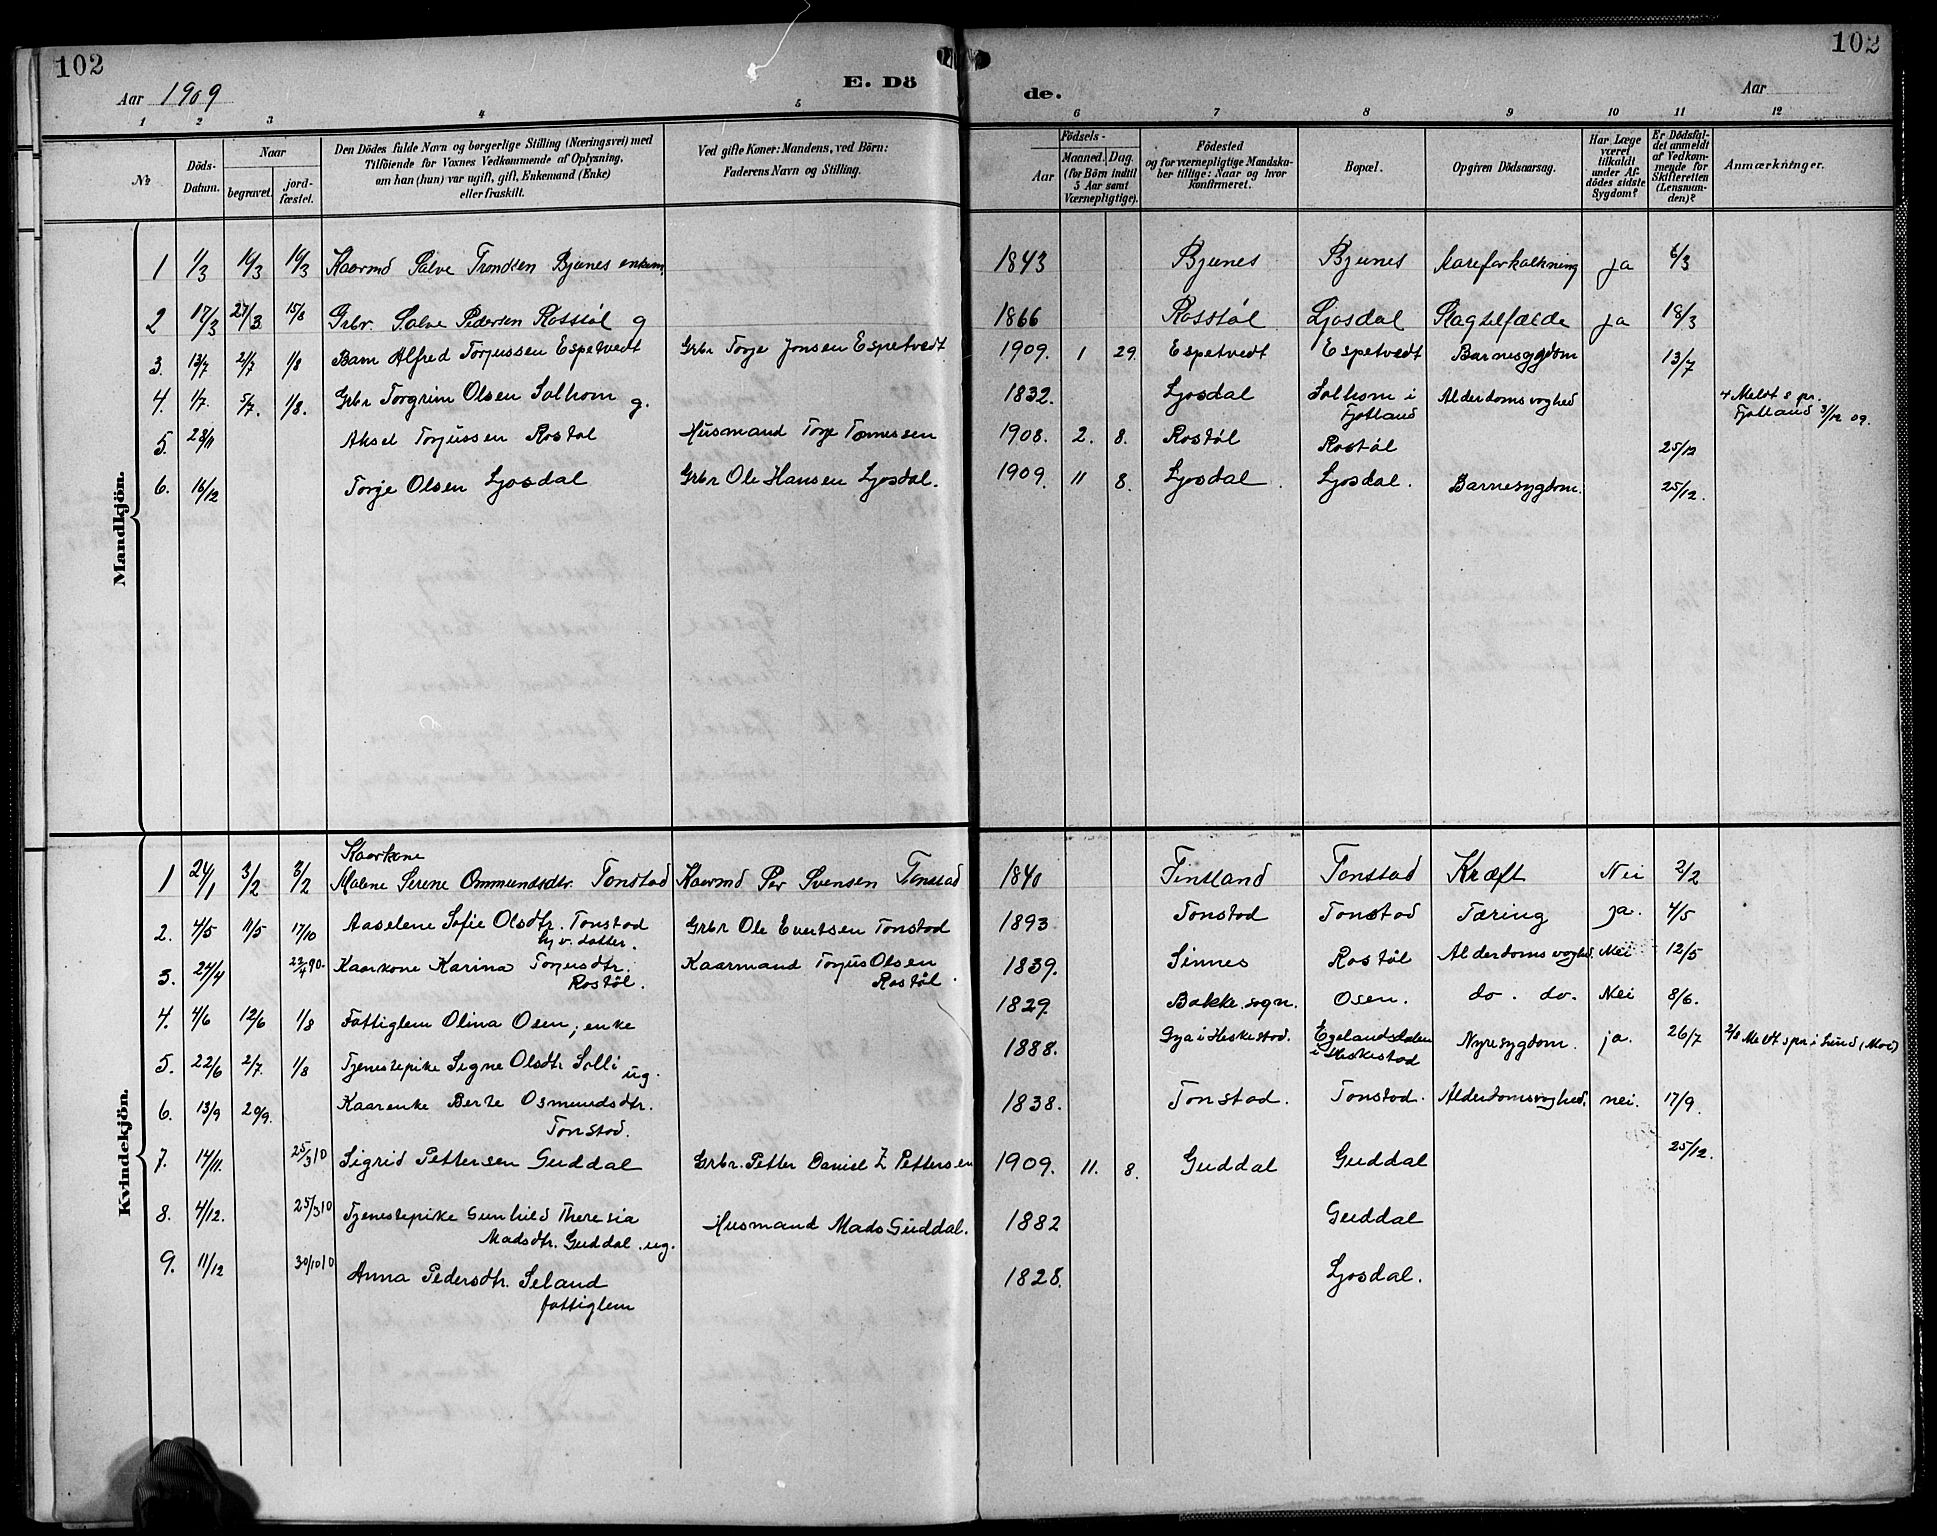 102
102
Aar 1909
E. Dö
de.
Aar
1 2 3 4 5 6 7 8 9 10 11 12
№
Döds-Datum.
Naar
begravet.
jord-fæstet.
Den Dödes fulde Navn og borgerlige Stilling (Næringsvei) med
Tilföiende for Voxnes Vedkommende af Oplysning,
om han (hun) var ugift, gift, Enkemand (Enke)
eller fraskilt.
Ved gifte Koner: Mandens, ved Börn:
Faderens Navn og Stilling.
Födsels-
Aar
Maaned. Dag.
(for Börn indtil
5 Aar samt
Værnepligtige).
Födested
og for værnepligtige Mandska-
ber tillige: Naar og hvor
konfirmeret.
Bopæl.
Opgiven Dödsaarsag.
Har Læge
været
tilkaldt
under Af-
dödes sidste
Sygdom?
Er Dödsfal-
det anmeldt
af Vedkom-
mende for
Skifteretten
(Lensman-
den)?
Anmærkninger.
Mandkjön.
1 1/3 16/3 16/3 Kaarmd Salve Trondsen Bjunes enkem. 1843 Bjunes Bjunes Aareforkalkning ja 6/3
2 17/3 27/3 15/8 Grbr. Salve Pedersen Rosstøl g 1866 Rosstøl Ljosdal Slagtilfælde ja 18/3
3. 13/7 21/7 1/8 Barn Alfred Torjussen Espetvedt Grbr Torje Jonsen Espetvedt 1909. 1 29. Espetvedt Espetvedt Barnesygdom 13/7
4. 1/7. 5/7. 1/8. Grbr Torgrim Olsen Solhom g. 1832. Ljosdal Solhom i Fjotland Alderdomsvaghed 4 Meldt s pr. Fjotland 3/12 09.
5. 28/11 Aksel Torjussen Rostøl Husmand Torje Tønnessen 1908. 2. 8. Rostøl Rostøl 25/12
6. 16/12 Torje Olsen Ljosdal Grbr Ole Hansen Ljosdal. 1909. 11 8. Ljosdal. Ljosdal. Barnesygdom. 25/12.
Kvindekjön.
Kaarkone
1 24/1 3/2 3/2 Malene Serene Ommundsdtr. Tonstad Kaarmd Per Svensen Tonstad 1840 Finsland Tonstad Kræft Nei 2/2
2. 4/5 11/5 17/10 Aaselene Sofie Olsdtr. Tonstad Grbr Ole Evertsen Tonstad 1893 Tonstad Tonstad Tæring ja. 4/5
hj.v. datter.
3. 24/4 22/4 90. Kaarkone Karina Torjusdtr. Rostøl. Kaarmand Torjus Olsen Rostøl. 1839. Sinnes Rostøl Alderdomsvaghed. Nei 12/5
4. 4/6 12/6 1/8 Fattiglem Olina Osen, enke 1829. Bakke sogn. Osen. do. do. Nei 8/6.
5. 22/6 2/7. 1/8 Tjenestepike Signe Olsdtr Solli ug. 1888. Gya i Heskestad. Egelandsdalen i Heskestad Nyresygdom. ja. 26/7 2/8 Meldt spr i Lund (Moi)
6. 13/9 20/9. Kaarenke Berte Osmundsdtr. Tonstad. 1838. Tonstad. Tonstad. Alderdomsvaghed. nei. 17/9.
7. 14/11. 25/3 10 Sigrid Pettersen Guddal Grbr. Petter Daniel Z Pettersen 1909. 11. 8. Guddal Guddal 25/12.
8. 4/12. 25/3 10 Tjenestepike Gunhild Theresia Madsdtr. Guddal. ug. Husmand Mads Guddal. 1882 Guddal
9. 11/12 30/10 10 Anna Pedersdtr. Seland 1828. Ljosdal.
fattiglem